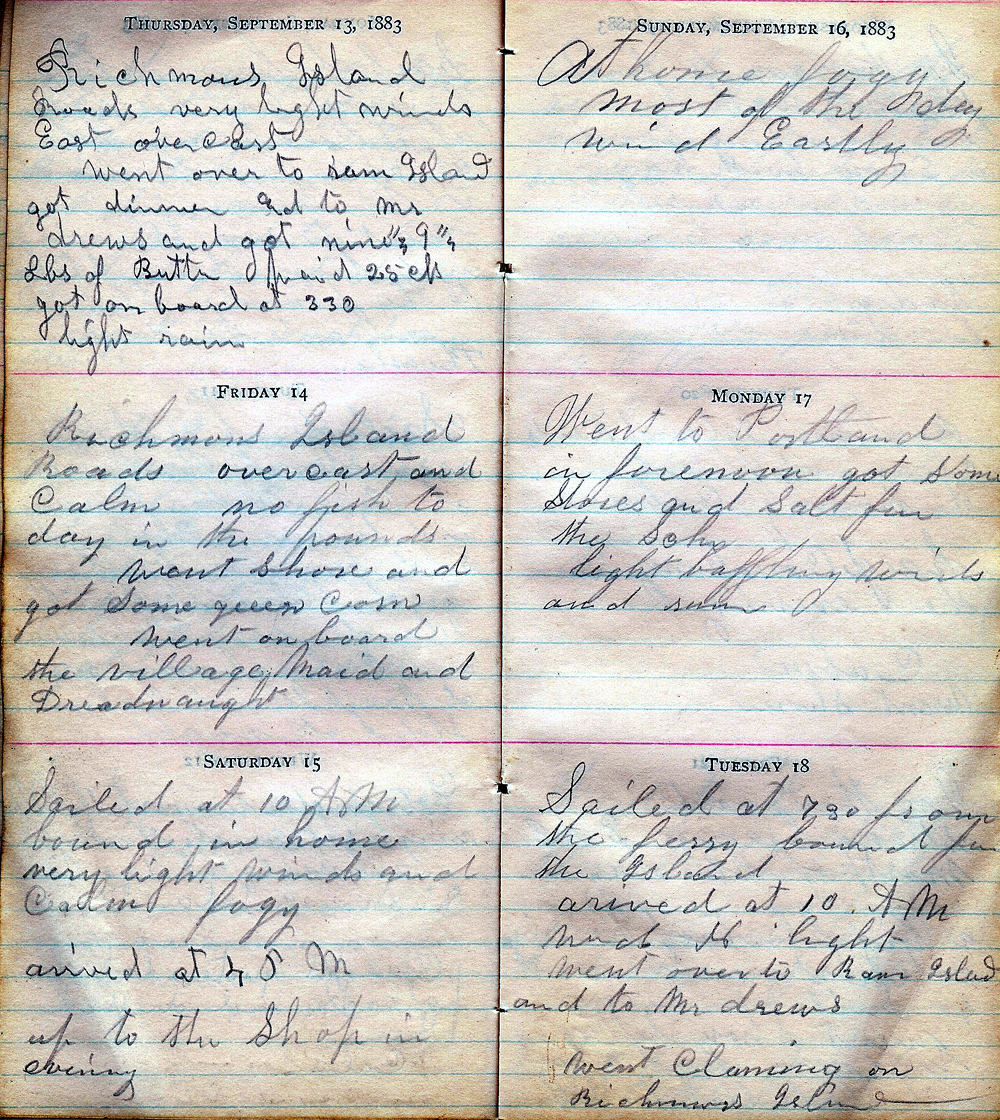 THURSDAY, SEPTEMBER 13, 1883
Richmons Island
Roads very light winds
East overcast
went over to Ram Island
got dinner &d to Mr
drews and got nine 9
Lbs of Buttr paid 25 cts
got on board at 330
light rain
FRIDAY 14
Richmons Island
Roads overcast and
Calm no fish to
day in the pounds
went Shore and
got Some green Corn
went on board
the village Maid and
Dreadnaught
SATURDAY 15
Sailed at 10 AM
bound in home
very light winds and
Calm fogy
arived at 4 P M
up to the Shop in
evining
SUNDAY, SEPTEMBER 16, 1883
At home foggy
most of the day
wind Eastly
MONDAY 17
Went to Portland
in forenoon got Som
Stores and Salt fur
the Sch
light baffling winds
and
TUESDAY 18
Sailed at 730 from
the ferry bound fur
the Island
arived at 10. AM
wind N light
went over to Ram Islad
and to Mr drews
went Claming on
Richmons Islan